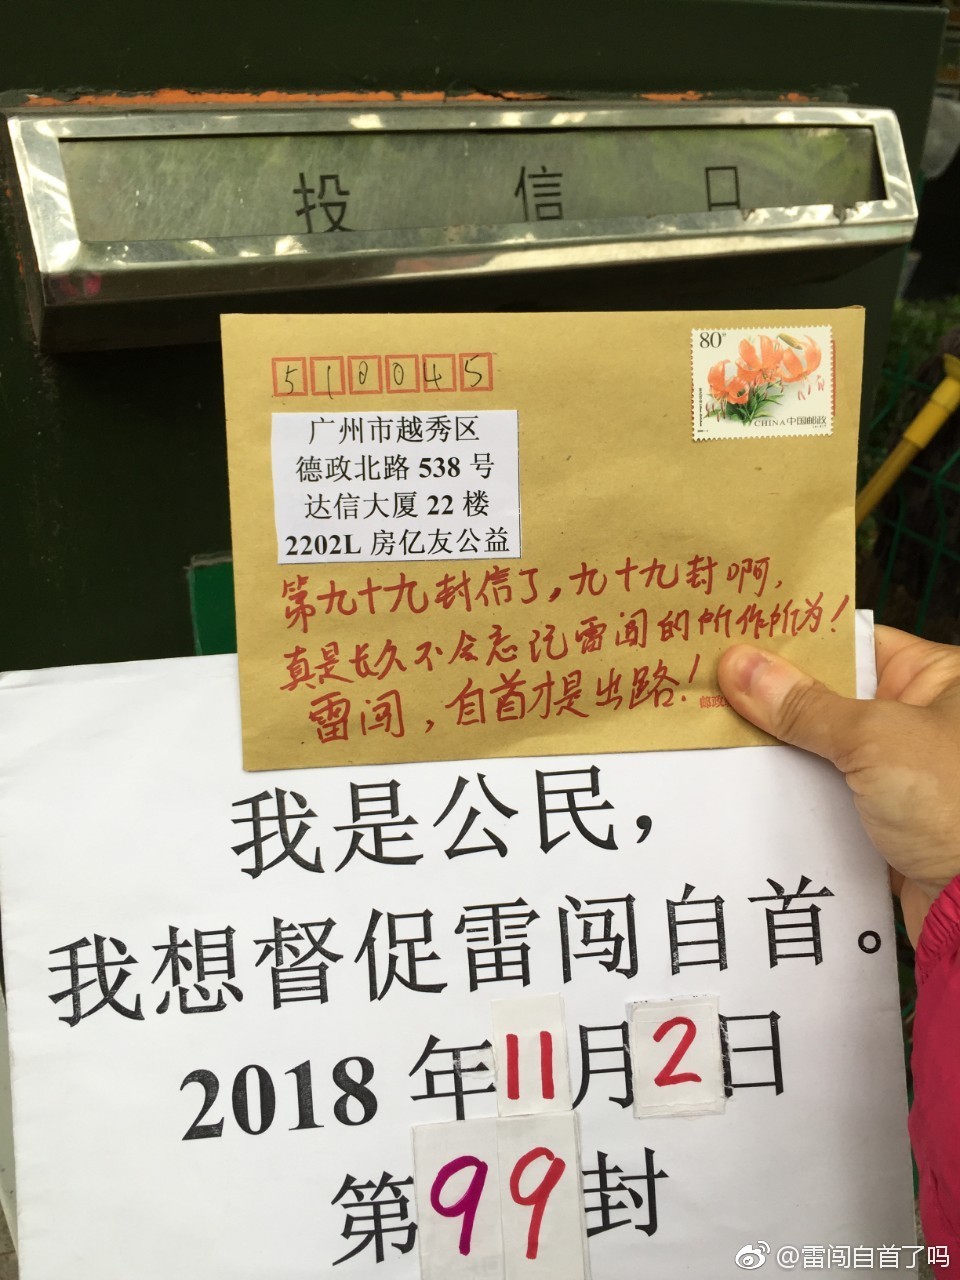 投 信 口
518045
80分
CHINA 中国邮政
广州市越秀区
德政北路 538 号
达信大厦 22 楼
2202L 房亿友公益
第九十九封信了，九十九封啊，
真是长久不会忘记雷闯的所作所为！
雷闯，自首才是出路！
邮政
我是公民，
我想督促雷闯自首。
2018 年 11 月 2 日
第 99 封
@雷闯自首了吗